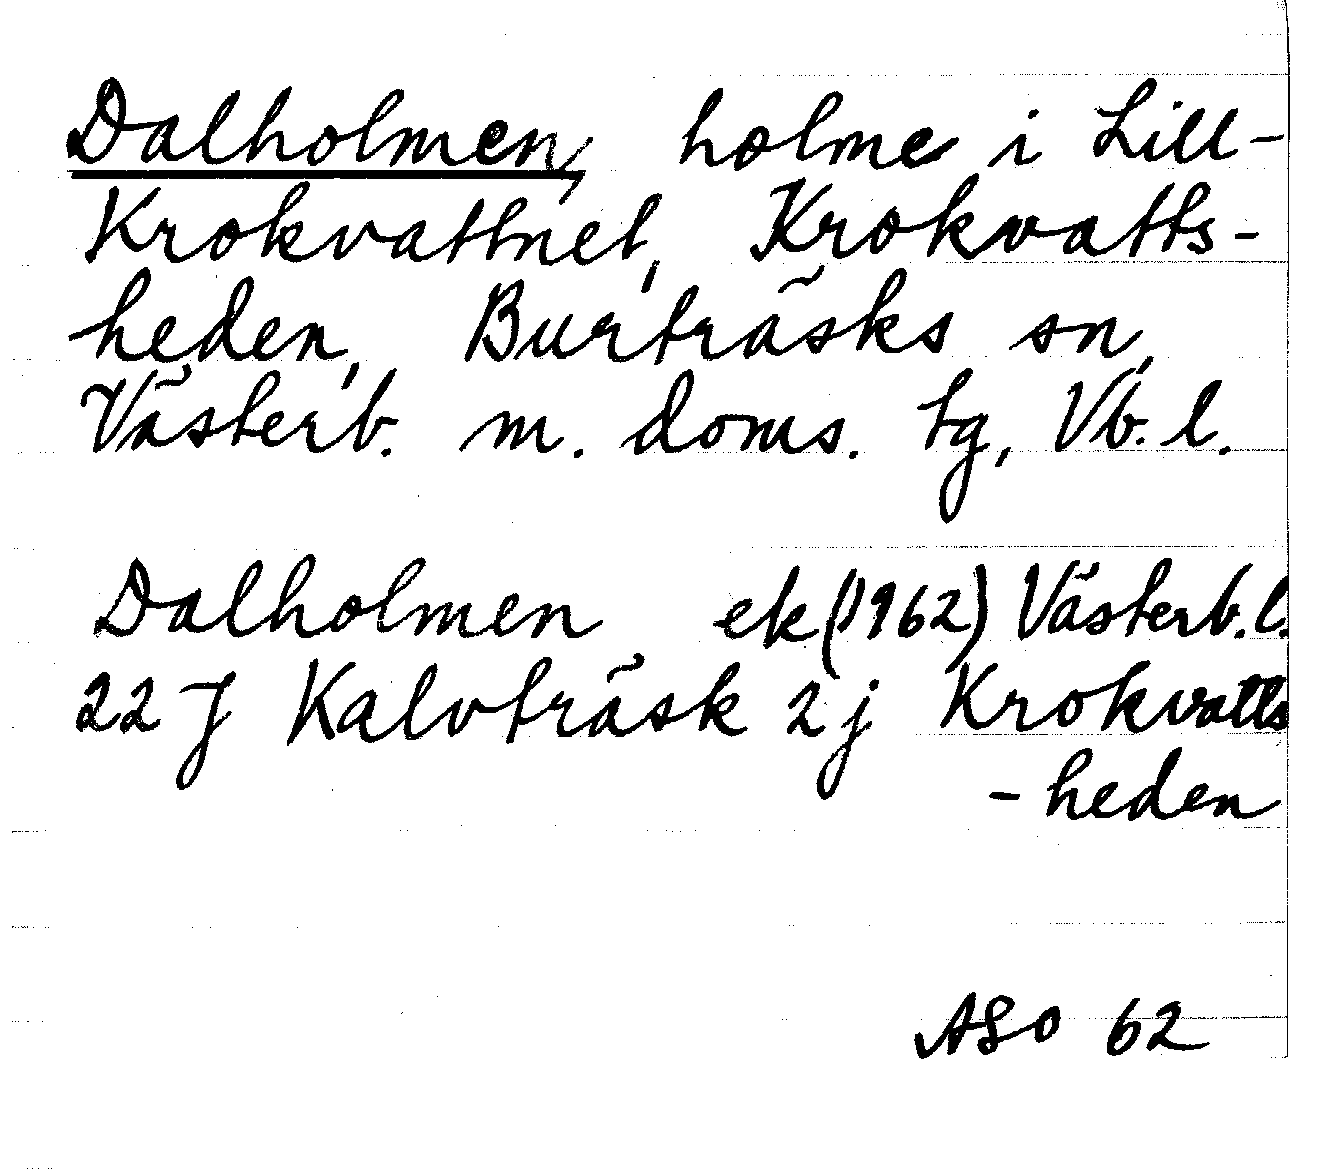 Dalholmen, holme i Lill-
Krokvattnet, Krokvatts-
heden, Burträsks sn,
Västerb. m. doms. tg, Vb. l.
Dalholmen ek (1962) Västerb. l.
22 J Kalvträsk 2 j Krokvatts
-heden
ASO 62